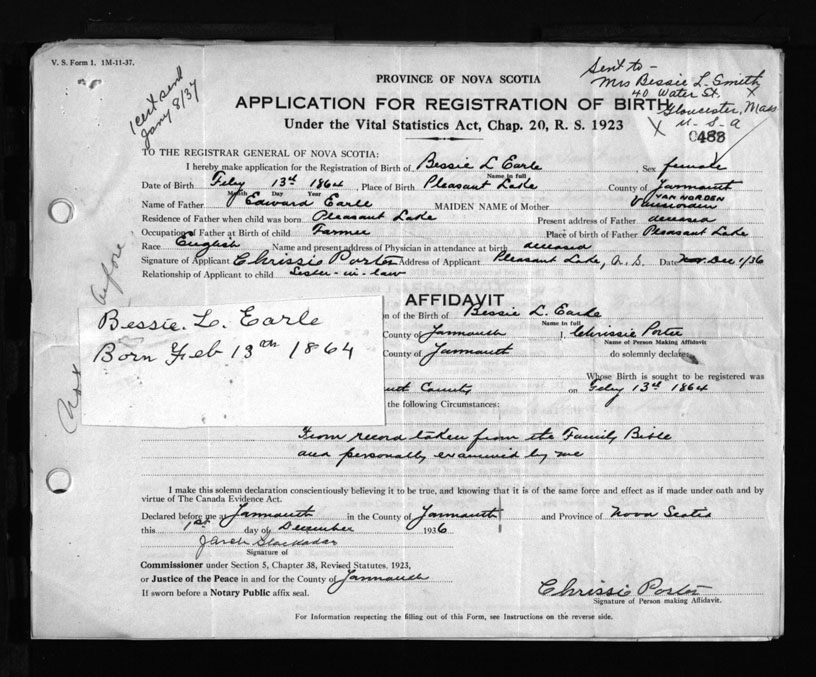 V. S. Form 1. 1M-11-37.
1 cert send
Jany 8/37
Sent to -
Mrs Bessie L. Smith
40 Water St. X
Gloucester, Mass
X U - S - A
0488
PROVINCE OF NOVA SCOTIA
APPLICATION FOR REGISTRATION OF BIRTH
Under the Vital Statistics Act, Chap. 20, R. S. 1923
TO THE REGISTRAR GENERAL OF NOVA SCOTIA:
I hereby make application for the Registration of Birth of Bessie L Earle, Sex female
Name in full
Date of Birth Feby 13th 1864, Place of Birth Pleasant Lake County of Yarmouth
Month Day Year
VAN NORDEN
Name of Father Edward Earle MAIDEN NAME of Mother Vannorden
Residence of Father when child was born Pleasant Lake Present address of Father deceased
Occupation of Father at Birth of child Farmer Place of birth of Father Pleasant Lake
Race English Name and present address of Physician in attendance at birth deceased
Signature of Applicant Chrissie Porter Address of Applicant Pleasant Lake, N.S. Date Dec 1/36
Relationship of Applicant to child Sister-in-law
before
AFFIDAVIT
Bessie. L. Earle
Born Feb 13th 1864
n of the Birth of Bessie L. Earle
Name in full
County of Yarmouth I, Chrissie Porter
Name of Person Making Affidavit
County of Yarmouth do solemnly declare
Whose Birth is sought to be registered was
County on Feby 13th 1864
the following Circumstances:
From record taken from the Family Bible
and personally examined by me
I make this solemn declaration conscientiously believing it to be true, and knowing that it is of the same force and effect as if made under oath and by
virtue of The Canada Evidence Act.
Declared before me at Yarmouth in the County of Yarmouth and Province of Nova Scotia
this 1st day of December 1936
Signature of
Commissioner under Section 5, Chapter 38, Revised Statutes, 1923,
or Justice of the Peace in and for the County of Yarmouth
If sworn before a Notary Public affix seal.
Chrissie Porter
Signature of Person making Affidavit.
For Information respecting the filling out of this Form, see Instructions on the reverse side.